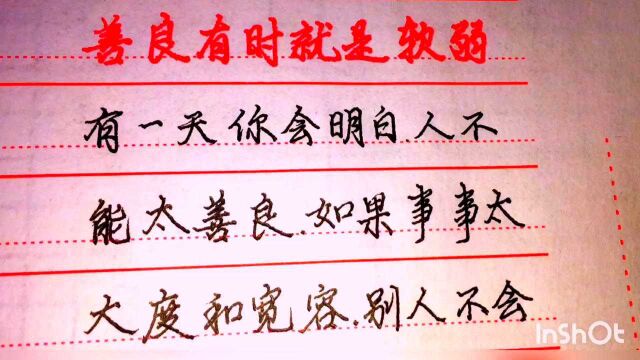 善良有时就是软弱
有一天你会明白.人不
能太善良.如果事事太
大度和宽容.别人不会
InShOt